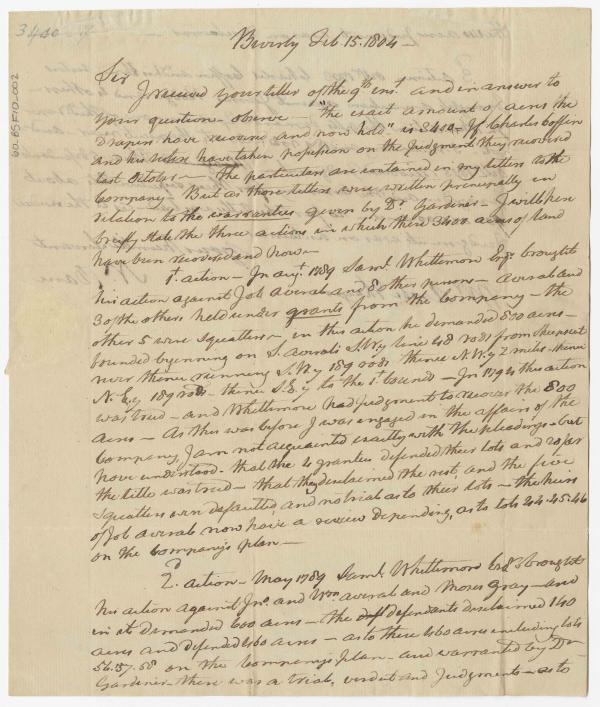 3400
60.65F10.002
Beverly Feb 15. 1804 —
Sir
I received your letter of the 9th inst. and in answer to
your question — observe — "the exact amount of acres the
Drapers have recovered and now hold" is 3400 — If Charles
and his have taken possession on the Judgment they recovered
last October — The particulars are contained in my letters to the
Company — But as those letters were written principally in
relation to the warranties given by Dr. Gardiner — I will here
briefly state the three actions in which these 3400 acres of land
have been recovered and how —
1st. action — In augt. 1789 Saml. Whittemore Esqr. brought
his action against Job Averal and 8 other persons — averal and
3 of the others held under grants from the Company — the
other 5 were Squatters — in this action he demanded 800 acres —
bounded beginning on S. averals S.Wy line 48 rods from sheepscut
river thence running S.Wy 189 rods thence N.Wy 2 miles — thence
N.Ey 189 rods — thence S.Ey to the 1st. bound — In 1794 this action
was tried — and Whittemore had Judgment to recover the 800
acres — As this was before I was engaged in the affairs of the
Company, I am not acquainted exactly with the pleadings — but
have understood that the 4 grantees defended their lots and so far
the title was tried — that they disclaimed the rest, and the five
squatters were defaulted, and no trial as to their lots — the heirs
of Job averal now have a review depending, as to lots 44. 45. 46
on the Company's plan —
2d. action — May 1789 Saml. Whittemore Esqr. brought
his action against Jno. and Wm. averal and Moses Gray — and
in it demanded 600 acres — the defendants disclaimed 140
acres and defended 460 acres — as to these 460 acres including lots
56. 57. 58 on the Companys plan — and warranted by Dr.
Gardiner — there was a trial, verdict and Judgment — as to